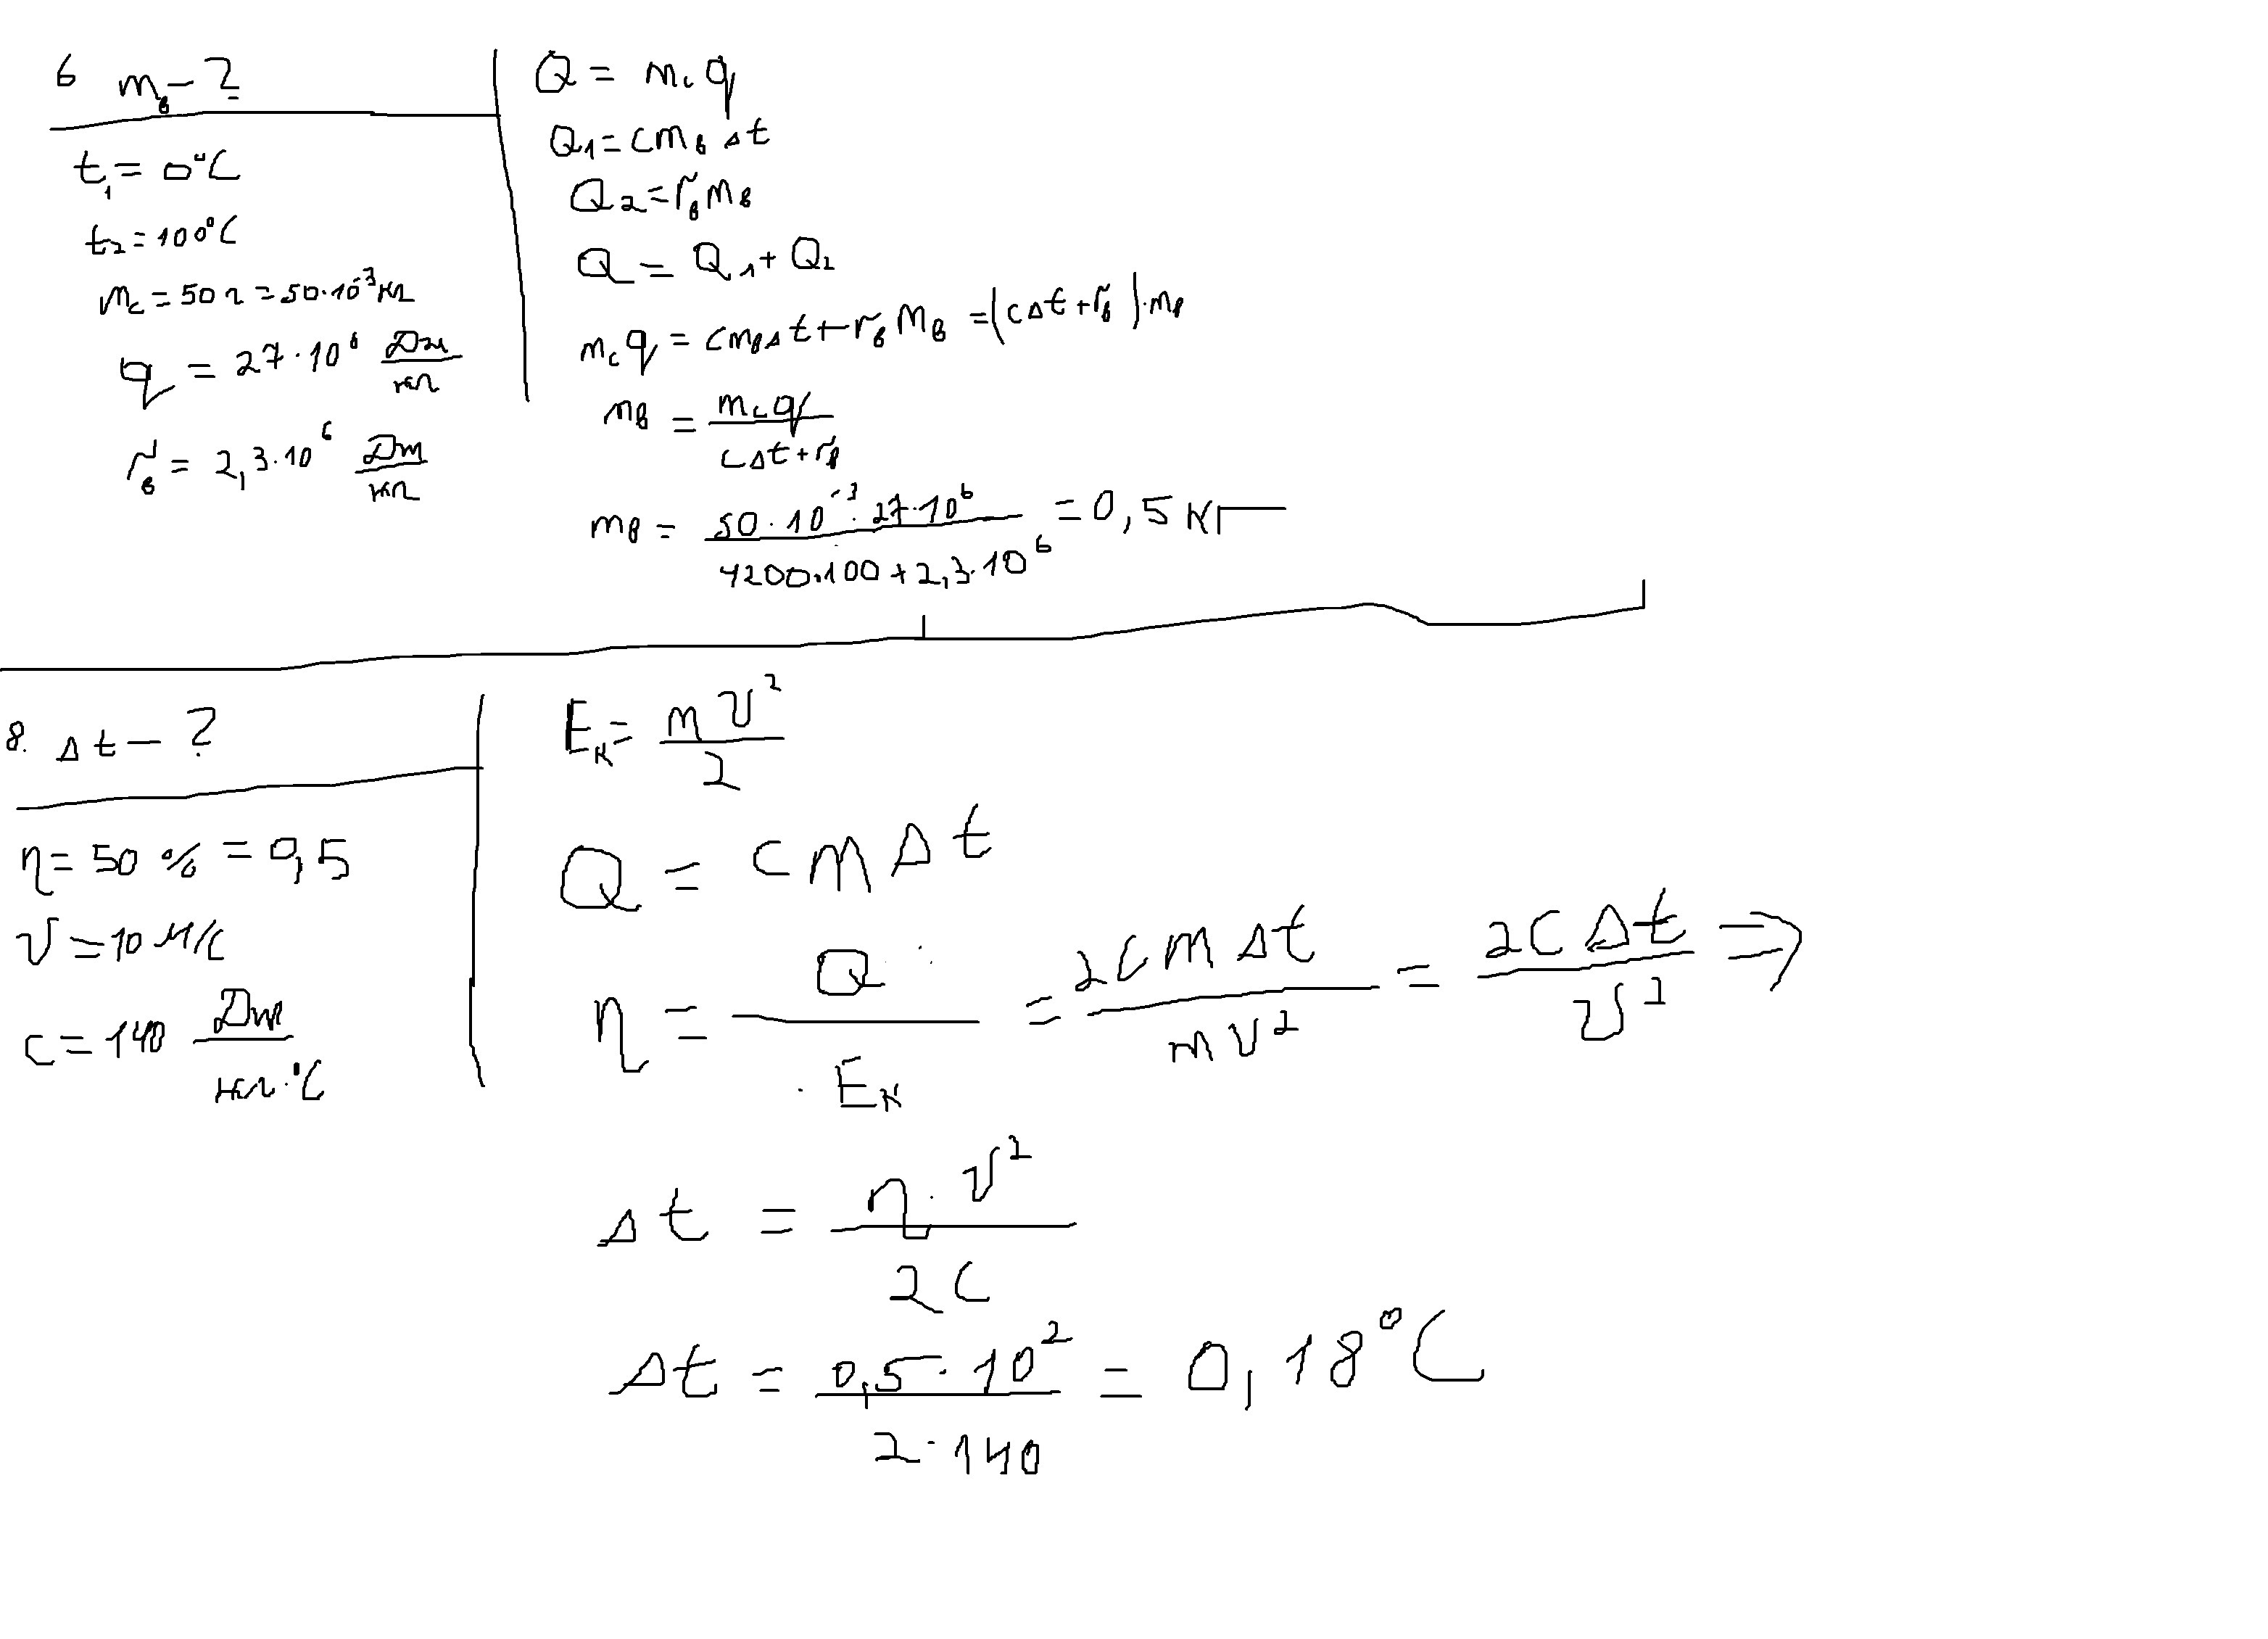 6 mв – ?
t₁ = 0°C
t₂ = 100°C
mc = 50 г = 50·10⁻³ кг
q = 27·10⁶ Дж/кг
rв = 2,3·10⁶ Дж/кг
Q = mc q
Q₁ = cmв Δt
Q₂ = rв mв
Q = Q₁ + Q₂
mc q = cmвΔt + rв mв = (cΔt + rв)·mв
mв = mc q / cΔt + rв
mв = 50·10⁻³·27·10⁶ / 4200·100 + 2,3·10⁶ = 0,5 кг
8. Δt – ?
η = 50 % = 0,5
υ = 10 м/с
c = 140 Дж/кг·°C
Eк = mυ²/2
Q = cmΔt
η = Q/Eк = 2cmΔt/mυ² = 2cΔt/υ² ⇒
Δt = η·υ²/2c
Δt = 0,5·10²/2·140 = 0,18°C